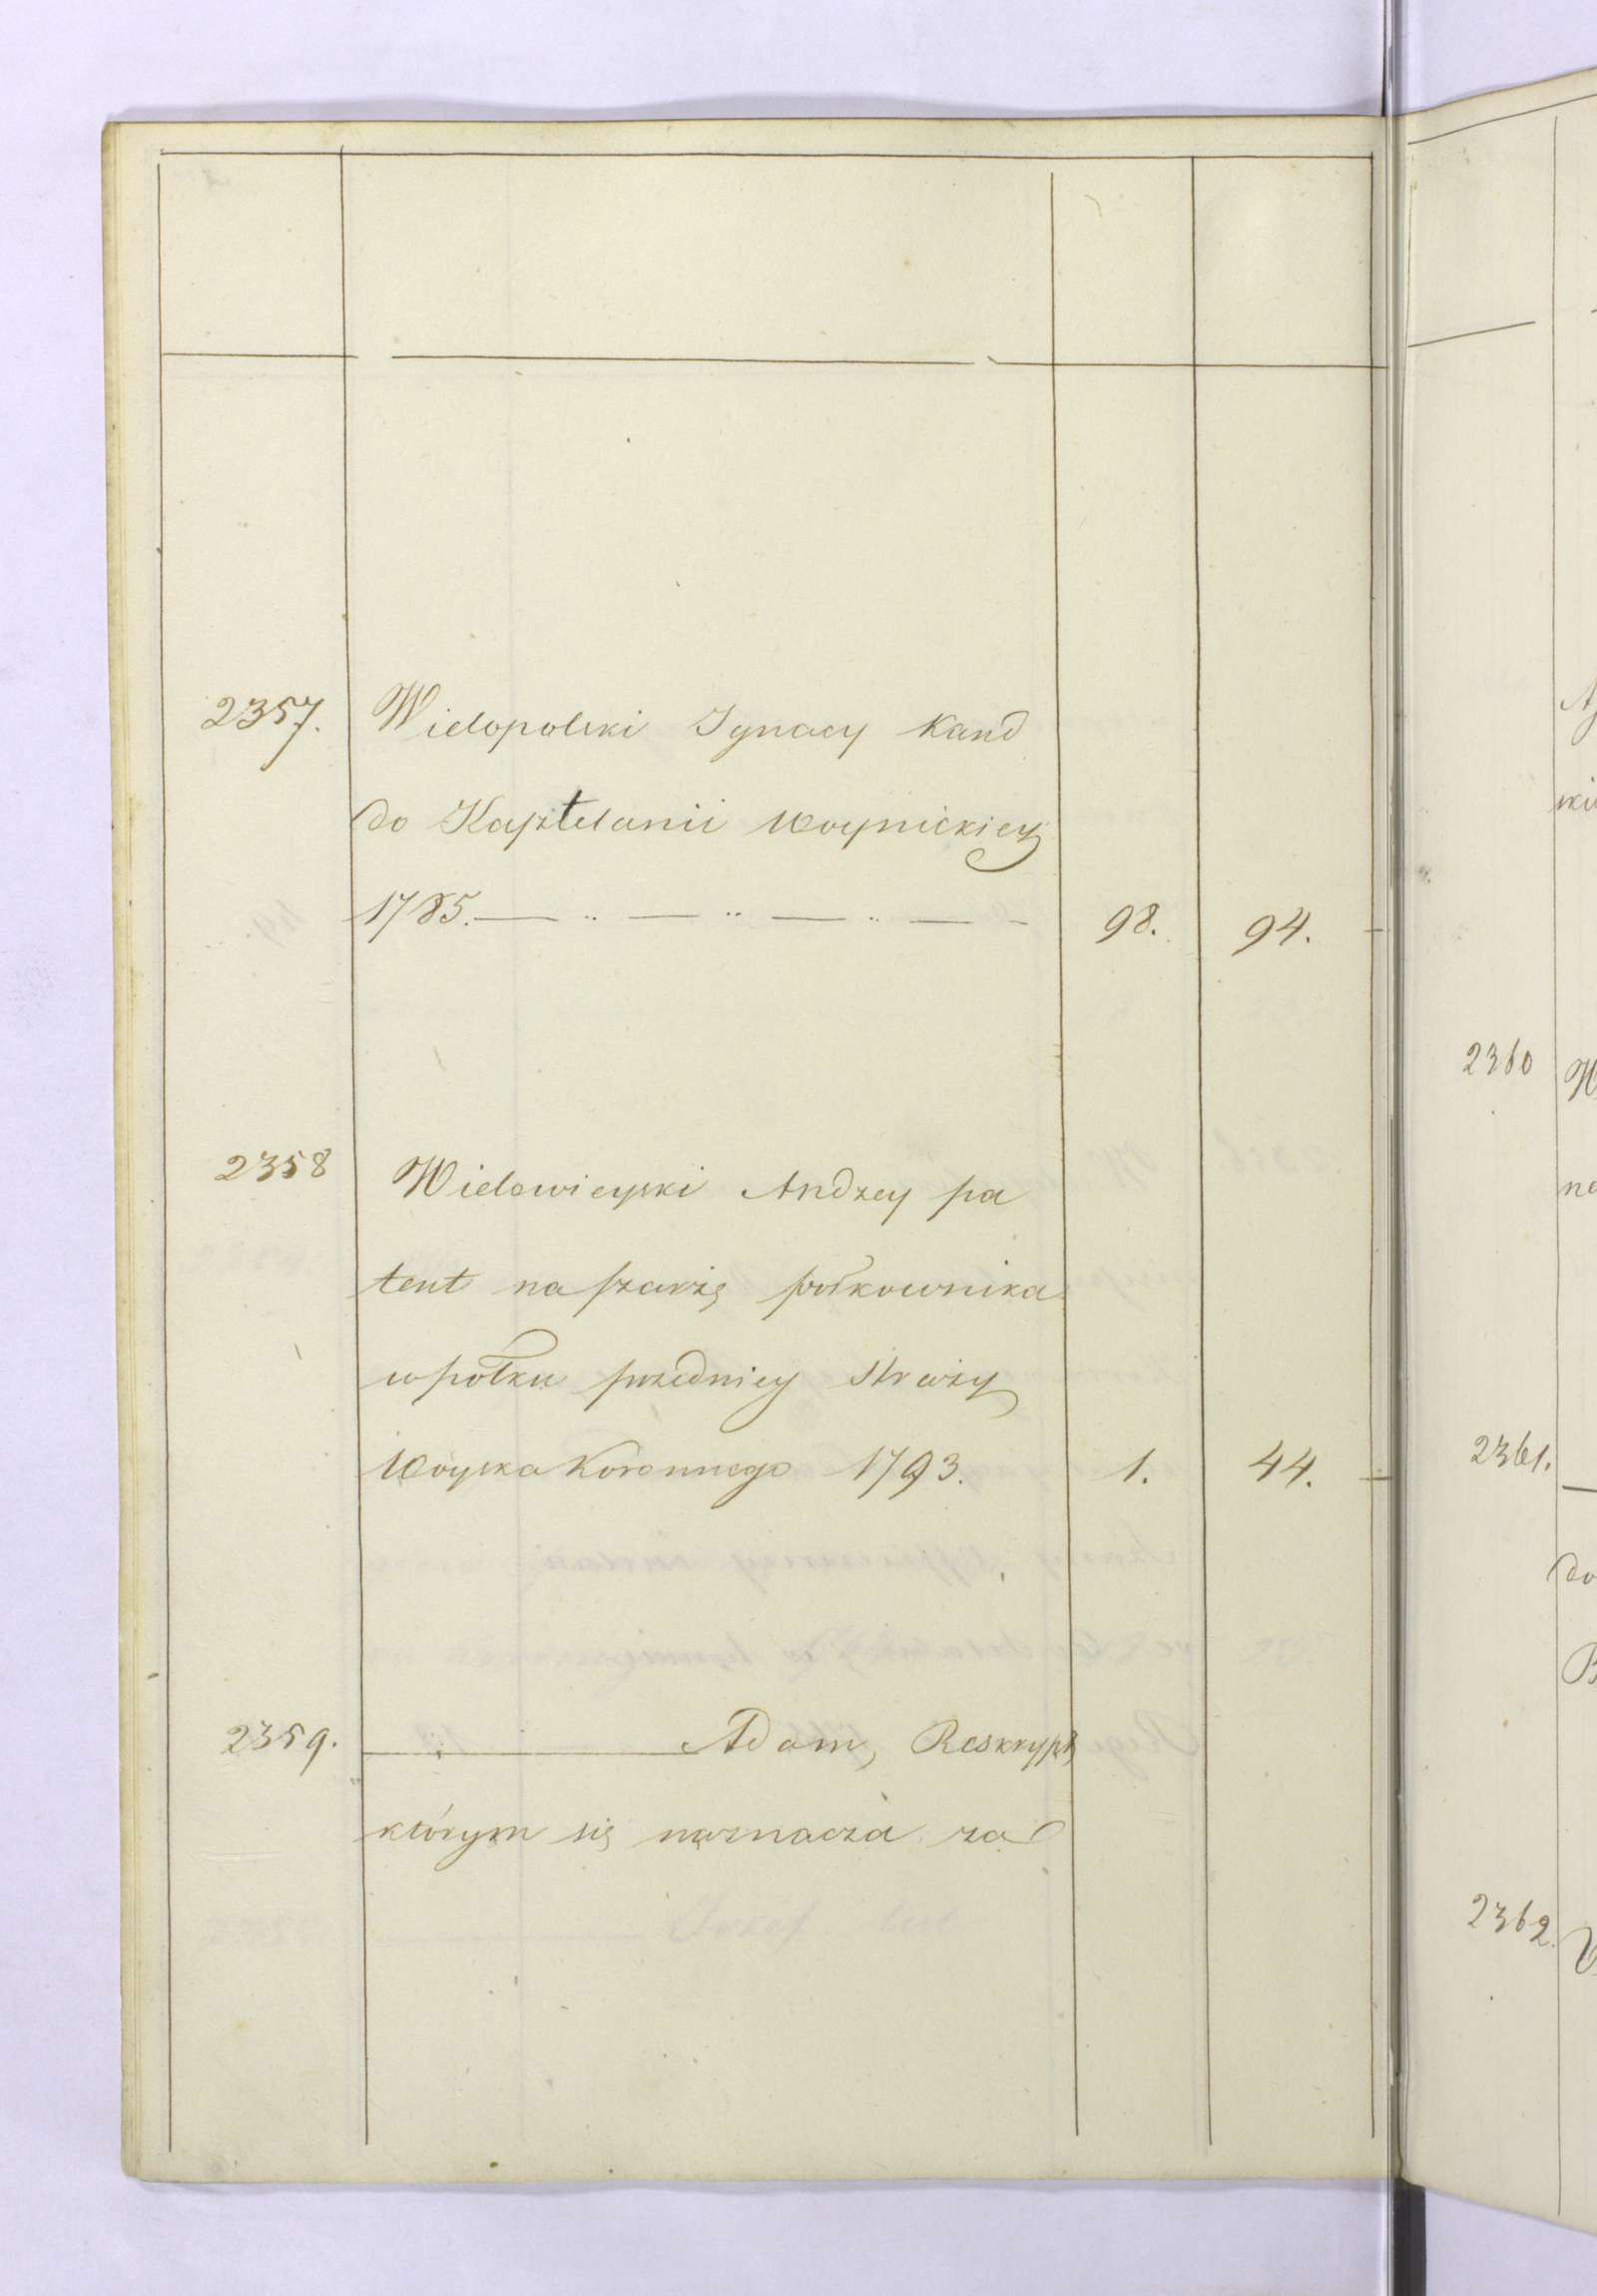 2357. Wielopolski Ignacy Kand
do Kasztelanii Woynickiey
1785. — .. — .. — .. — - 98. 94.
2358 Wielowieyski Andrzey pa
tent na szarżę półkownika
w połku przedniey Straży
Woyska Koronnego 1793. 1. 44.
2359. ——— Adam, Reskrypt
którym się naznacza za
2360
2361.
do
2362.